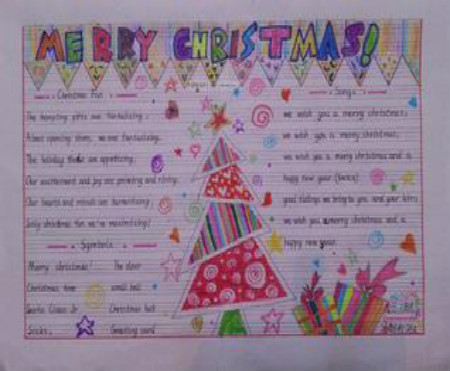 MERRY CHRISTMAS!
Christmas Fun
The tempting gifts are tantalizing;
About opening them, we are fantasizing,
The holiday are appetizing;
Our excitement and joy are and rising.
Our hearts and minds are
Jolly christmas fun we're maximizing!
Symbols
Merry christmas! The deer
Christmas tree small bell
Santa Claus Jr. Christmas hat
Socks Greeting card
Songs
we wish you a merry christmas;
we wish you a merry christmas;
we wish you a merry christmas and a
happy new year (twice)
good tidings we bring to you and your
we wish you a merry christmas and a
happy new year.